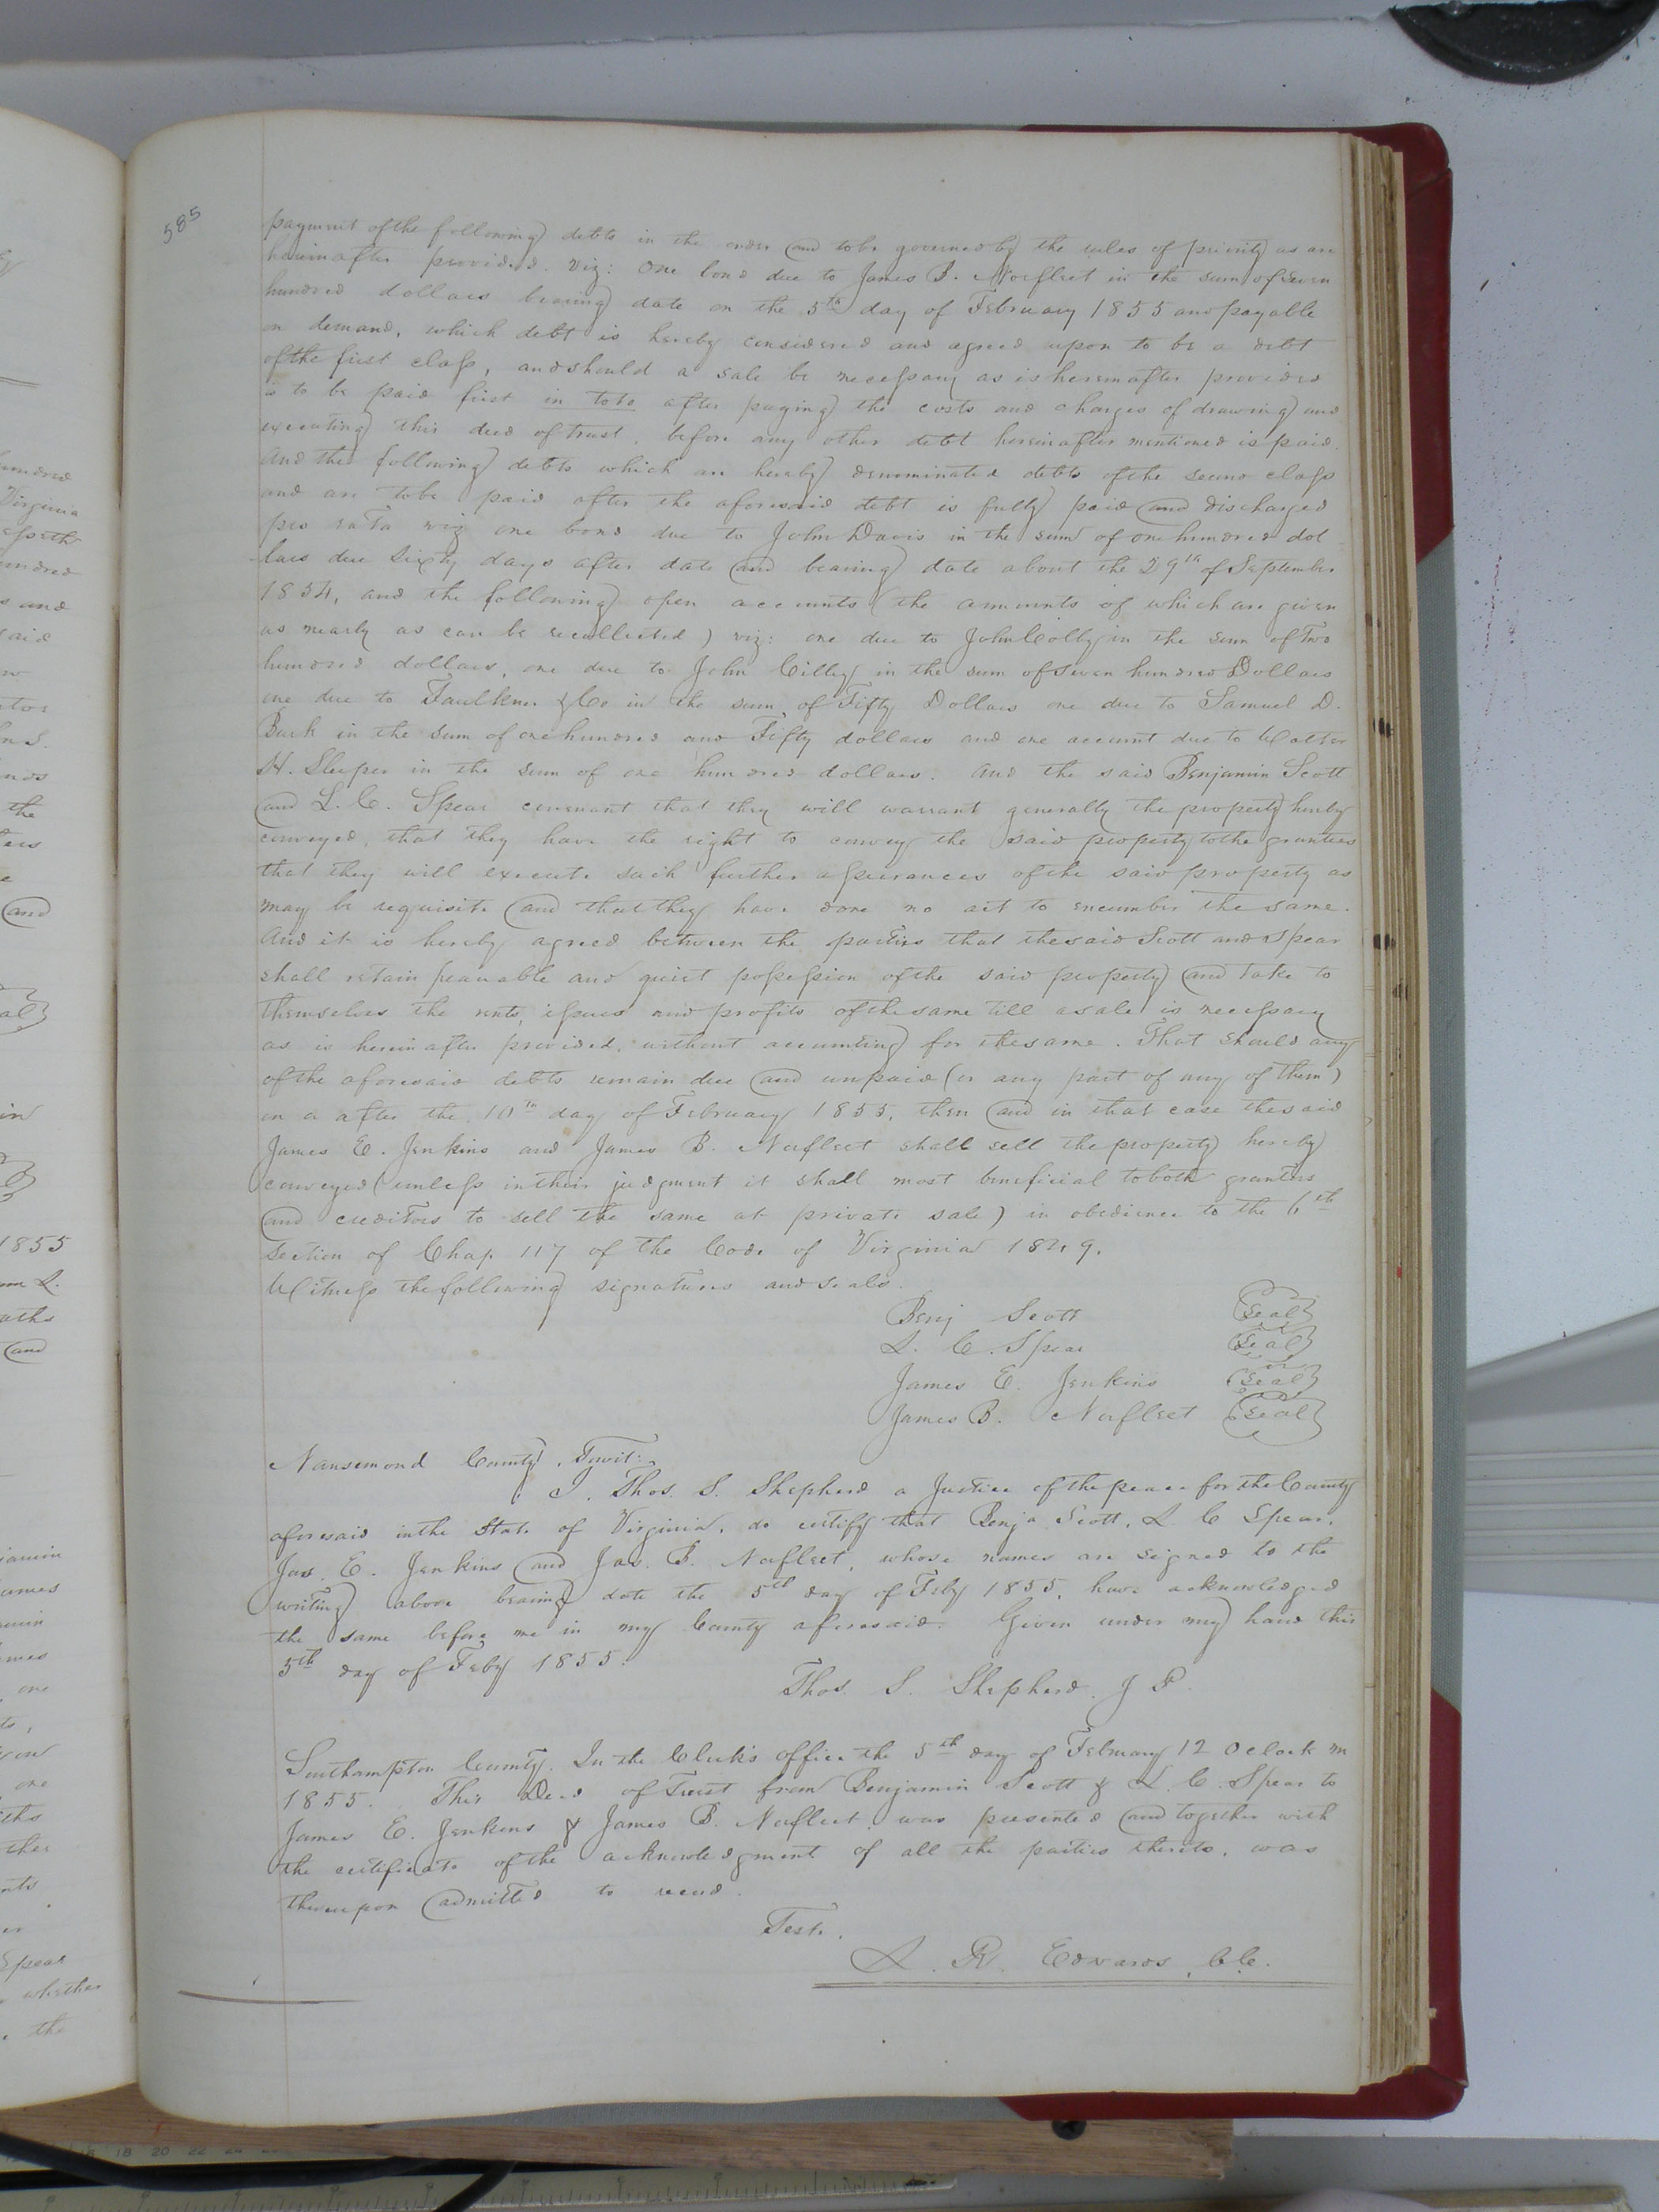 585
payment of the following debts in the order and to be governed by the rules of priority as are
hereinafter provided. viz: One bond due to James B. Norfleet in the sum of seven
hundred dollars bearing date on the 5th day of February 1855 and payable
on demand, which debt is hereby considered and agreed upon to be a debt
of the first class, and should a sale be necessary as is hereinafter provided
is to be paid first in toto after paying the costs and charges of drawing and
executing this deed of trust, before any other debt hereinafter mentioned is paid.
And the following debts which are hereby denominated debts of the second class
and are to be paid after the aforesaid debt is fully paid and discharged
pro rata viz one bond due to John Davis in the sum of one hundred dol
-lars due sixty days after date and bearing date about the 29th of September
1854, and the following open accounts (the amounts of which are given
as nearly as can be recollected) viz: one due to John Colly in the sum of two
hundred dollars, one due to John Cilley in the sum of seven hundred Dollars
one due to Faulkner & Co in the sum of Fifty Dollars one due to Samuel D.
in the sum of one hundred and Fifty dollars and one account due to Walter
H. Sleeper in the sum of one hundred dollars. And the said Benjamin Scott
and L. C. Spear covenant that they will warrant generally the property hereby
conveyed, that they have the right to convey the said property to the grantees
that they will execute such further assurances of the said property as
may be requisite and that they have done no act to encumber the same.
And it is hereby agreed between the parties that the said Scott and Spear
shall retain peaceable and quiet possession of the said property and take to
themselves the rents, issues and profits of the same till a sale is necessary
as is herein after provided, without accounting for the same. That should any
of the aforesaid debts remain due and unpaid (or any part of any of them)
on a after the 10th day of February 1855, then and in that case the said
James E. Jenkins and James B. Norfleet shall sell the property hereby
conveyed (unless in their judgment it shall most beneficial to both grantors
and creditors to sell the same at private sale) in obedience to the 6th
section of Chap. 117 of the Code of Virginia 1849.
Witness the following signatures and seals.
Benj Scott Seal
L. C. Spear Seal
James E. Jenkins Seal
James B. Norfleet Seal
Nansemond County, Towit:
I. Thos. S. Shepherd a Justice of the peace for the County
aforesaid in the State of Virginia, do certify that Benja Scott, L. C Spear,
Jas. E. Jenkins and Jas. B. Norfleet, whose names are signed to the
writing above bearing date the 5th day of Feby 1855, have acknowledged
the same before me in my County aforesaid. Given under my hand this
5th day of Feby 1855.
Thos. S. Shepherd. J P.
Southampton County. In the Clerk's office the 5th day of February 12 Oclock m
1855. This Deed of Trust from Benjamin Scott & L. C. Spear to
James E. Jenkins & James B. Norfleet was presented and together with
the certificate of the acknowledgment of all the parties thereto, was
thereupon admitted to record.
Test.
L. R. Edwards, C.C.